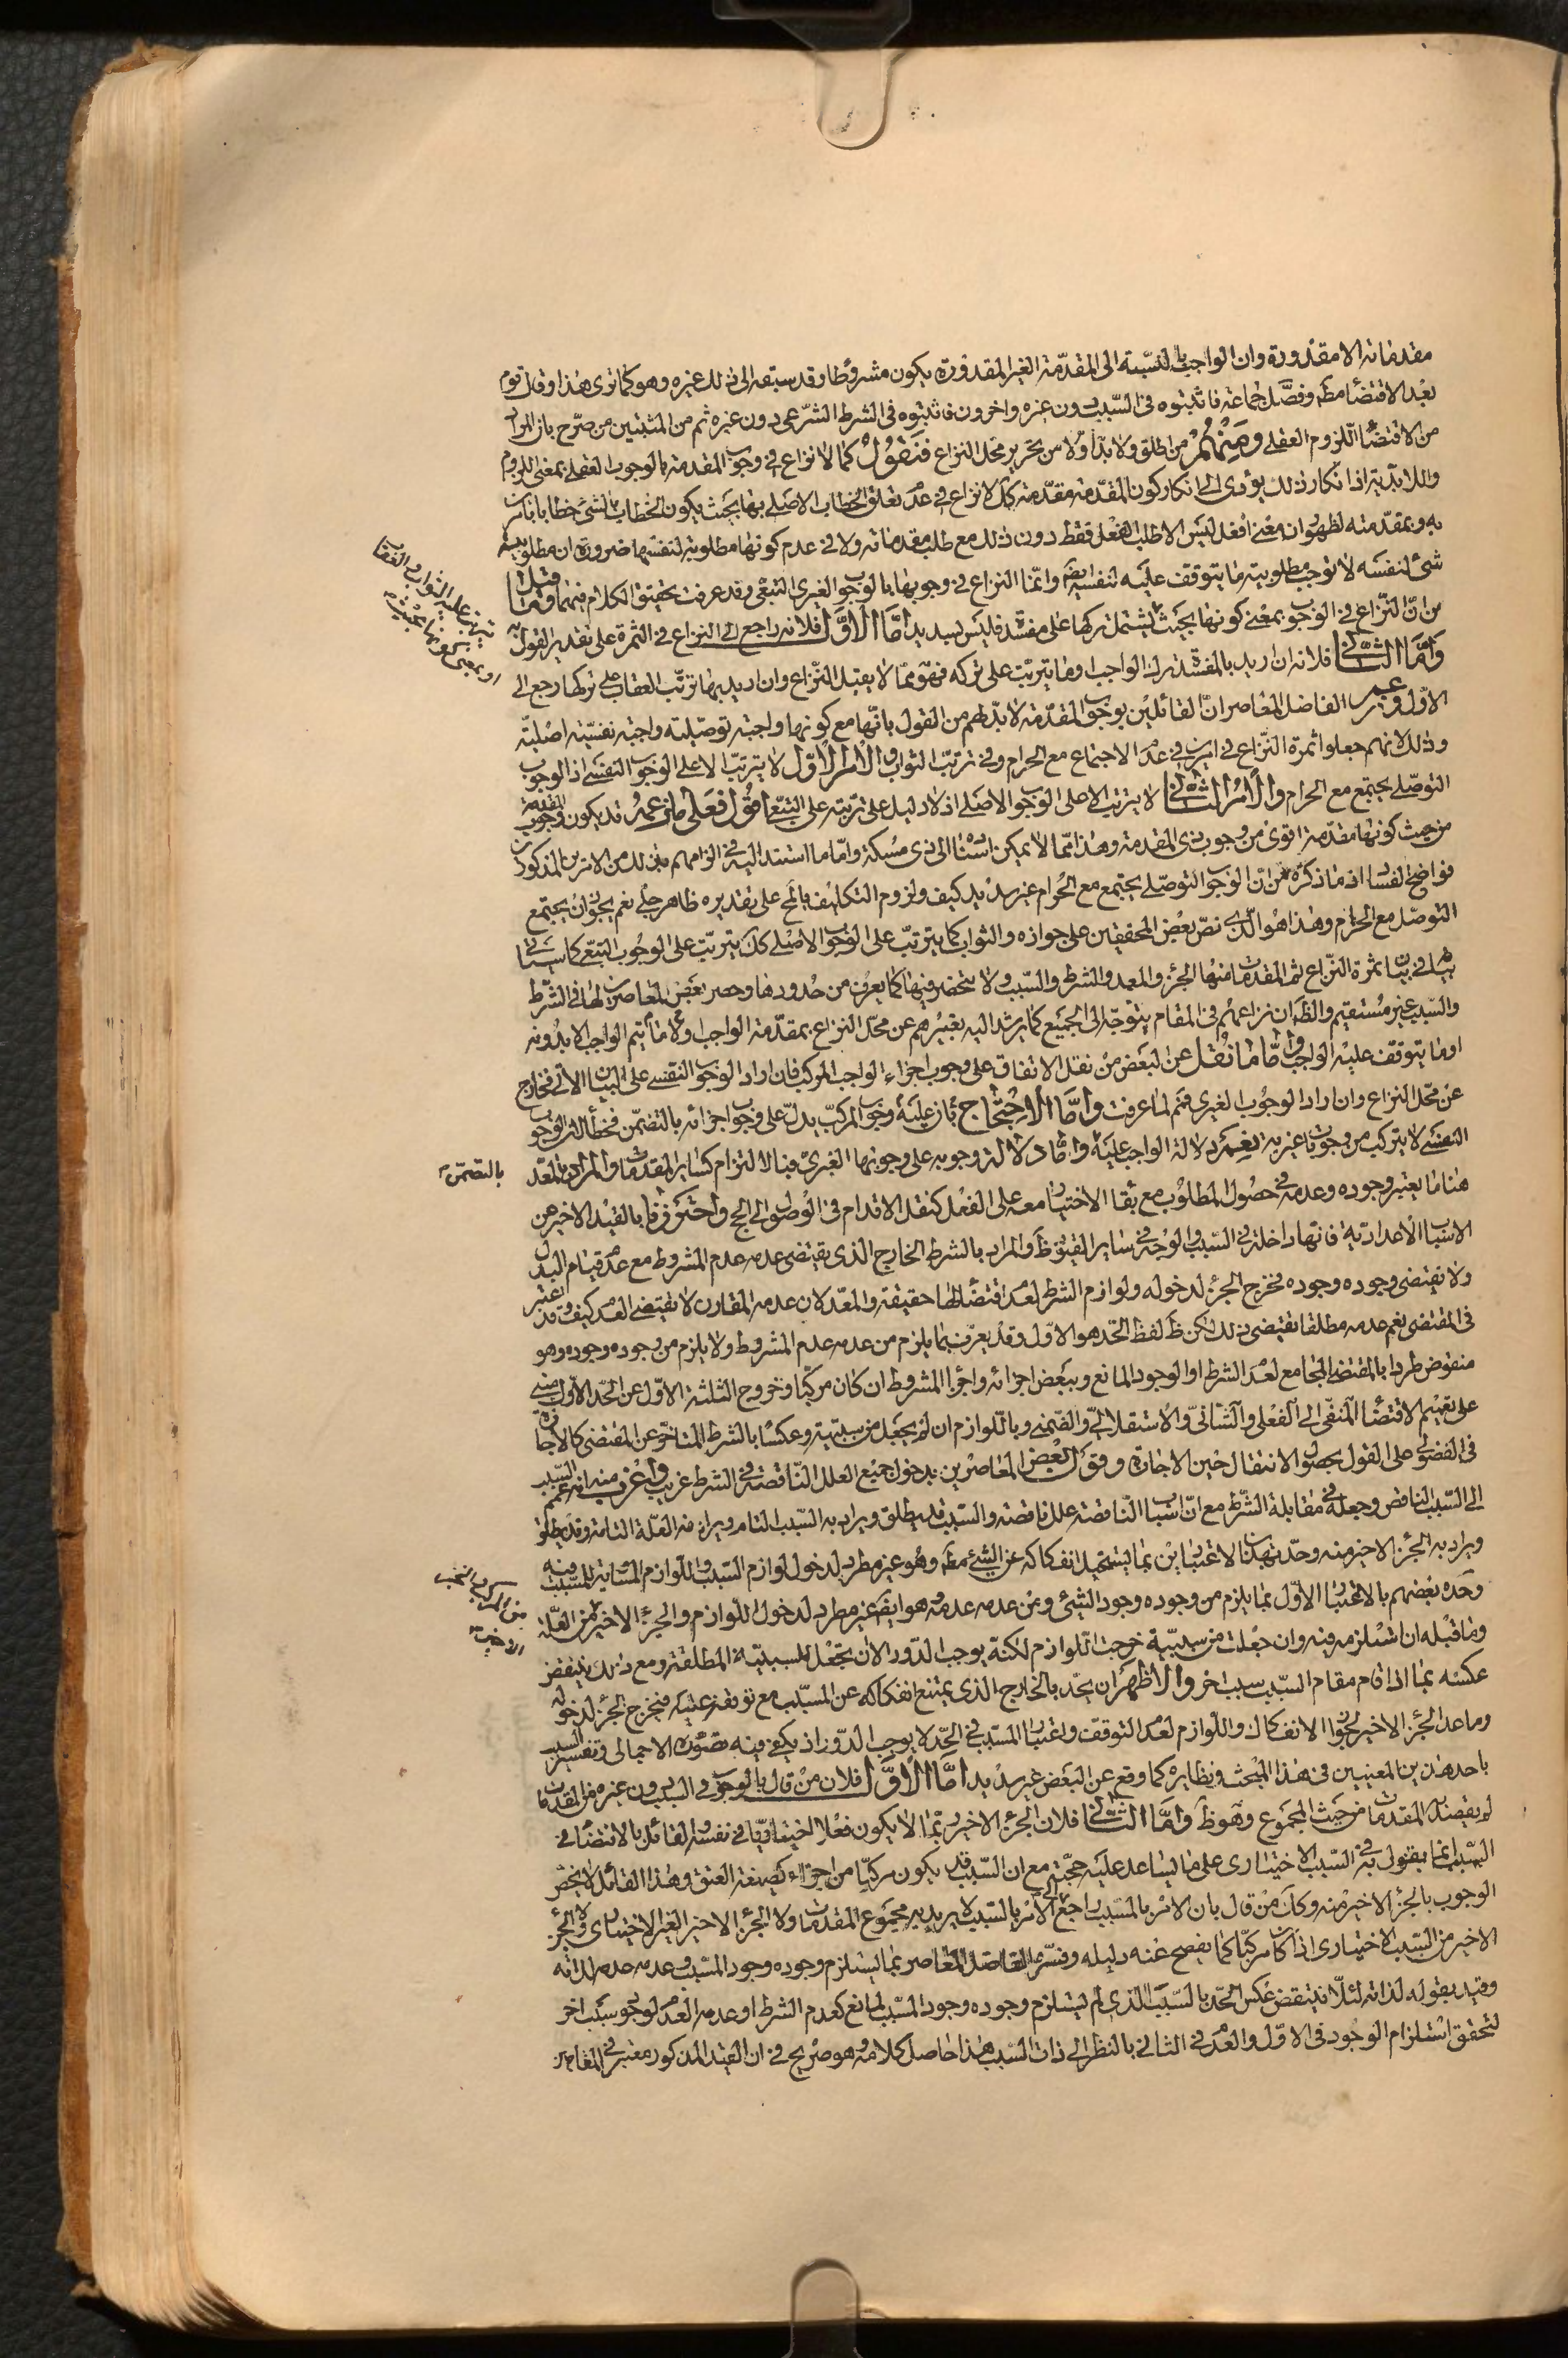 مقدماته الا مقدورة وان الواجب بالنسبة الى المقدّمة الغير المقدورة يكون مشروطا وقد سبقه الى ذلك غيره وهو كما ترى هذا وقال قوم
بعدم الاقتضاء مطم وفصّل جماعة فاثبتوه فى السّبب دون غيره واخرون فاثبتوه فى الشرط الشّرعى دون غيره ثم من المثبتين من صرّح بان المراد
من الاقتضاء اللّزوم العقلى ومنهم من اطلق ولا بدّ اولا من تحرير محل النزاع فنقول كما لا نزاع فى وجوب المقدمة بالوجوب العقلى بمعنى اللزوم
واللابدّية اذ انكار ذلك يؤدى الى انكار كون المقدّمة مقدّمة كك لا نزاع فى عدم تعلق الخطاب الاصلى بها بحيث يكون الخطاب بالشئ خطابا بامرين
به وبمقدّمته لظهور ان معنى افعل ليس الا طلب الفعل فقط دون ذلك مع طلب مقدماته ولا فى عدم كونها مطلوبة لنفسها ضرورة ان مطلوبية
شئ لنفسه لا توجب مطلوبية ما يتوقف عليه لنفسه ايضم وانّما النزاع فى وجوبها بالوجوب الغيرى التبعى وقد عرفت تحقيق الكلام فيهما وما قيل
من انّ النّزاع فى الوجوب بمعنى كونها بحيث يشتمل تركها على مفسدة فليس بسديد امّا الاوّل فلانه راجع الى النزاع فى الثمرة على تقدير القول به
وامّا الثانى فلانه ان اريد بالمفسدة ترك الواجب او ما يترتّب على تركه فهو ممّا لا يقبل النّزاع وان اريد بها ترتّب العقاب على تركها رجع الى
الاوّل وزعم الفاضل المعاصر انّ القائلين بوجوب المقدّمة لا بدّ لهم من القول بانّها مع كونها واجبة توصّلية واجبة نفسيّة اصليّة
وذلك لانهم جعلوا ثمرة النّزاع فى امرين فى عدم الاجتماع مع الحرام وفى ترتب الثواب والامر الاوّل لا يترتّب الا على الوجوب النفسى اذ الوجوب
التوصّلى يجتمع مع الحرام والامر الثانى لا يترتب الا على الوجوب الاصلى اذ لا دليل على ترتبه على التبعى اقول فعلى ما زعمه قد يكون وجوب المقدمة
من حيث كونها مقدّمة اقوى من وجوب ذى المقدمة وهذا ممّا لا يمكن اسناده الى ذى مسكة وامّا ما استند اليه فى الزامهم بذلك من الامرين المذكورين
فواضح الفساد اذ ما ذكره من ان الوجوب التوصّلى يجتمع مع الحرام غير سديد كيف ولزوم التكليف بالمحال على تقديره ظاهر جلى نعم يجوز ان يجتمع
التوصّل مع الحرام وهذا هو الّذى نصّ بعض المحققين على جوازه والثواب كما يترتّب على الوجوب الاصلى كك يترتّب على الوجوب التبعى كما سيأتى
بيانه فى بيان ثمرة النّزاع ثم المقدمات منها الجزء والمعد والشرط والسّبب ولا تنحصر فيها كما يعرف من حدودها وحصر بعض المعاصرين لها فى الشّرط
والسّبب غير مستقيم والظ ان نزاعهم فى المقام يتوجّه الى الجميع كما يرشد اليه تعبيرهم عن محلّ النزاع بمقدّمة الواجب او ما لا يتم الواجب الا بدونه
او ما يتوقف عليه الواجب وامّا ما نقل عن البعض من نقل الاتفاق على وجوب اجزاء الواجب المركب فان اراد الوجوب النفسى على البيان الاتى فخارج
عن محّل النزاع وان اراد الوجوب الغيرى فمنم لما عرفت وامّا الاحتجاج بان عليه وجوب المركّب يدلّ على وجوب اجزائه بالتضمّن فخطأ لان الوجوب
النفسى لا يتركب من وجوبات غيرية نعم دلالة الواجب عليه وامّا دلالة وجوبه على وجوبها الغيرى فبالالتزام كسائر المقدمات والمراد بالمعد
هنا ما يعتبر وجوده وعدمه فى حصول المطلوب مع بقاء الاختيار معه على الفعل كنقل الاقدام فى الوصول الى الحج واحترزنا بالقيد الاخير عن
الاسباب الاعدادية فانها داخلة فى السّبب والوجه فى ساير القيود ظ والمراد بالشرط الخارج الذى يقتضى عدمه عدم المشروط مع عدم قيام البدل
ولا يقتضى وجوده وجوده فخرج الجزء لدخوله ولوازم الشرط لعدم اقتضائها حقيقة والمعد لان عدمه المقارن لا يقتضى العدم كيف وقد اعتبر
فى المقتضى نعم عدمه مطلقا يقتضى ذلك لكن ظ لفظ الحّد هو الاوّل وقد يعرّف بما يلزم من عدمه عدم المشروط ولا يلزم من وجوده وجوده وهو
منقوض طردا بالمقتضى الجامع لعدم الشرط او لوجود المانع وببعض اجزائه واجزاء المشروط ان كان مركّبا وخروج الثلثة الاوّل عن الحّد الاول مبنى
على تعميم الاقتضاء المنفى الى الفعلى والشأنى والاستقلالى والضمنى وباللوازم ان لم يجعل من سببيّة وعكسا بالشرط المتاخر عن المقتضى كالاجازة
فى الفضولى على القول بحصول الانتقال حين الاجازة وقول بعض المعاصرين بدخول جميع العلل النّاقصة فى الشرط غريب واغرب منه انه عمم السّبب
الى السّبب الناقص وجعله فى مقابلة الشّرط مع انّ اسباب النّاقصة علل ناقصة والسّبب قد يطلق ويراد به السّبب التام ويرادفه العلّة التامة وقد يطلق
ويراد به الجزء الاخير منه وحدّ بهذا الاعتبارين بما يستحيل انفكاكه عن الشئ مطم وهو غير مطرد لدخول لوازم السّبب واللوازم المساوية للمسبّب فيه
وحده بعضهم بالاعتبار الاوّل بما يلزم من وجوده وجود الشئ ومن عدمه عدمه وهو ايضم غير مطرد لدخول اللوازم والجزء الاخير من العلّة
وما قبله ان استلزمه فيه وان جعلت من سببيّة خرجت اللوازم لكنّه يوجب الدّور الا ان تجعل للسببيّة المطلقة ومع ذلك ينتقض
عكسه بما اذا قام مقام السّبب سبب اخر والاظهر ان يحّد بالخارج الذى يمتنع انفكاكه عن المسبّب مع توقفه عليه فيخرج الجزء لدخوله
وما عدا الجزء الاخير لجواز الانفكاك واللوازم لعدم التوقف واعتبار المسبّب فى الحّد لا يوجب الدّور اذ يكفى فيه تصوّره الاجمالى وتفسير السبب
باحد هذين المعنيين فى هذا المبحث ونظايره كما وقع عن البعض غير سديد امّا الاوّل فلان من قال بالوجوب فى السّبب دون غيره من المقدمات
لم يقصد به المقدمات من حيث المجموع وهو ظ وامّا الثانى فلان الجزء الاخير ربّما لا يكون فعلا اختياريّا فى نفسه والقائل بالاقتضاء فى
السّبب انما يقول به فى السّبب الاختيارى على ما يساعد عليه حجّته مع ان السّبب قد يكون مركّبا من اجزاء كصيغة العتق وهذا القائل لا يخصّ
الوجوب بالجزء الاخير منه وكك من قال بان الامر بالمسّبب راجع الى الامر بالسّبب لا يريد به مجموع المقدمات ولا الجزء الاخير الغير الاختيارى ولا الجزء
الاخير من السّبب الاختيارى اذا كان مركّبا كما يفصح عنه دليله وفسّره الفاضل المعاصر بما يستلزم وجوده وجود المسّبب وعدمه عدمه لذاته
وقيد بقوله لذاته لئلّا ينتقض عكس الحّد بالسّبب الّذى لم يستلزم وجوده وجود المسّبب لمانع كعدم الشرط او عدمه العدم لوجود سبب اخر
لتحقق استلزام الوجود فى الاوّل والعدم فى الثانى بالنظر الى ذات السّبب هذا حاصل كلامه وهو صريح فى ان القيد المذكور معتبر فى المقامين
بالتضمّن